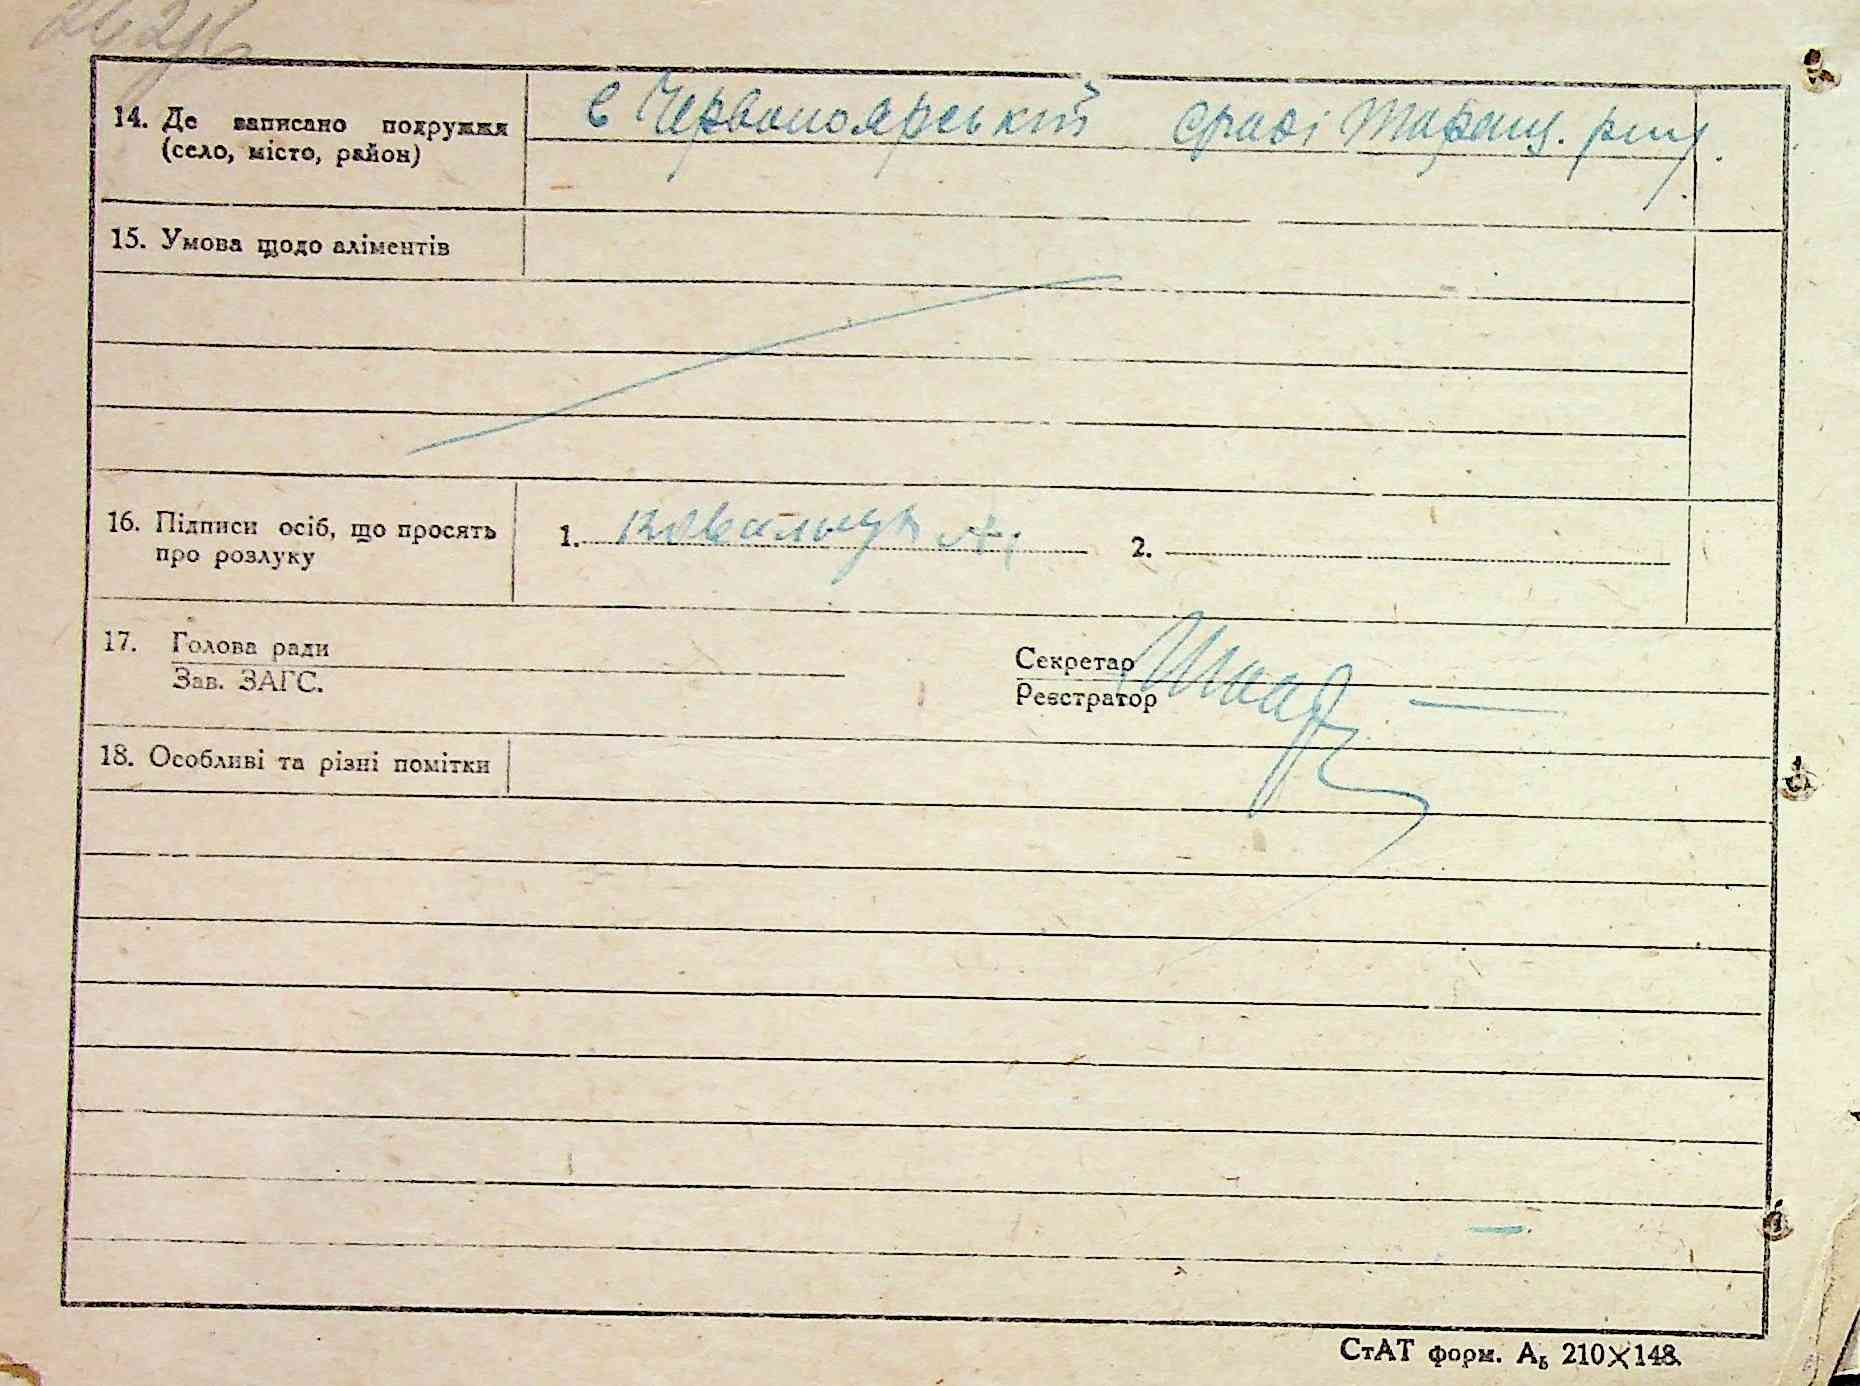 14. Де записано подружжя в Червоноярській сраді Таращ. рну.
(село, місто, район)
15. Умова щодо аліментів
16. Підписи осіб, що просять 1. Ковальчук А. 2.
про розлуку
17. Голова ради Секретар
Зав. ЗАГС. Реєстратор
18. Особливі та різні помітки
СтАТ форм. А₅ 210×148.